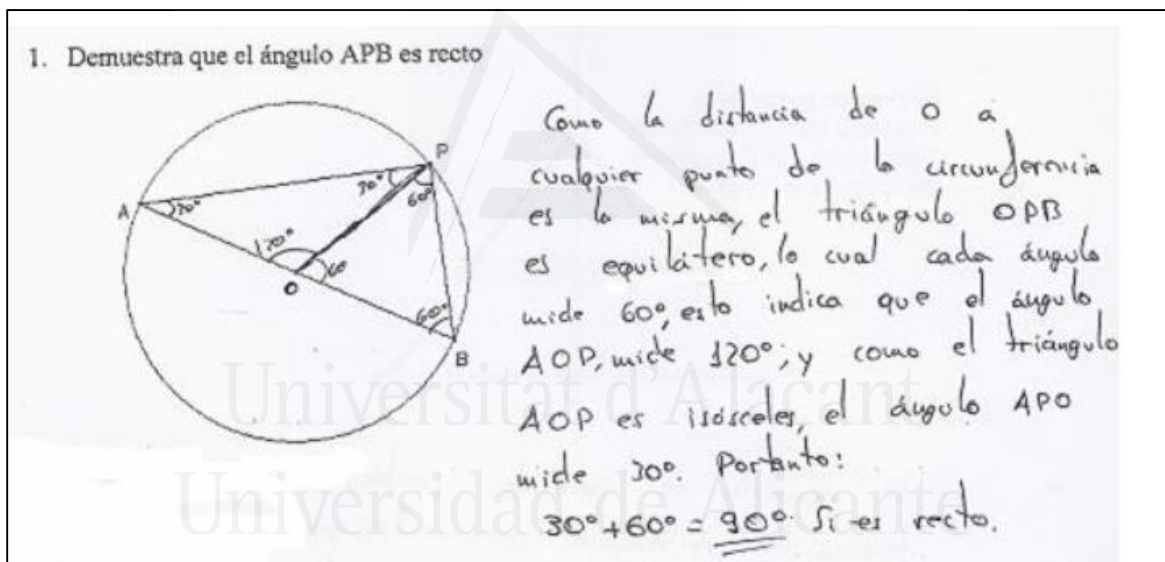 1. Demuestra que el ángulo APB es recto
Como la distancia de O a
cualquier punto de la circunferencia
es la misma, el triángulo OPB
es equilátero, lo cual cada ángulo
mide 60º, esto indica que el ángulo
AOP, mide 120º; y como el triángulo
AOP es isósceles, el ángulo APO
mide 30º. Portanto:
30º+60º = 90º. Si es recto.
P
30º
60º
A
30º
120º
60
O
60º
B
Universitat d'Alacant
Universidad de Alicante